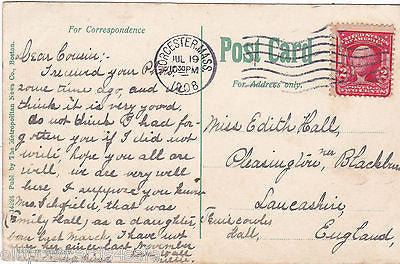 For Correspondence
Post Card
For Address only.
WORCESTER, MASS.
JUL 19
10 30 PM
1908
2 2
Dear Cousin:-
I received your P.
some time ago, and
think it is very good.
do not think I had for-
gotten you if I did not
write, hope you all are
well, we are very well
here. I suppose you know
Mrs. , that was
Emily Hall, as a daughter,
born last March, I have not
her since last November
well
Miss Edith Hall,
Pleasington, nr Blackburn
Lancashire,
England,
Hall,
44026 Publ. by The Metropolitan News Co., Boston.